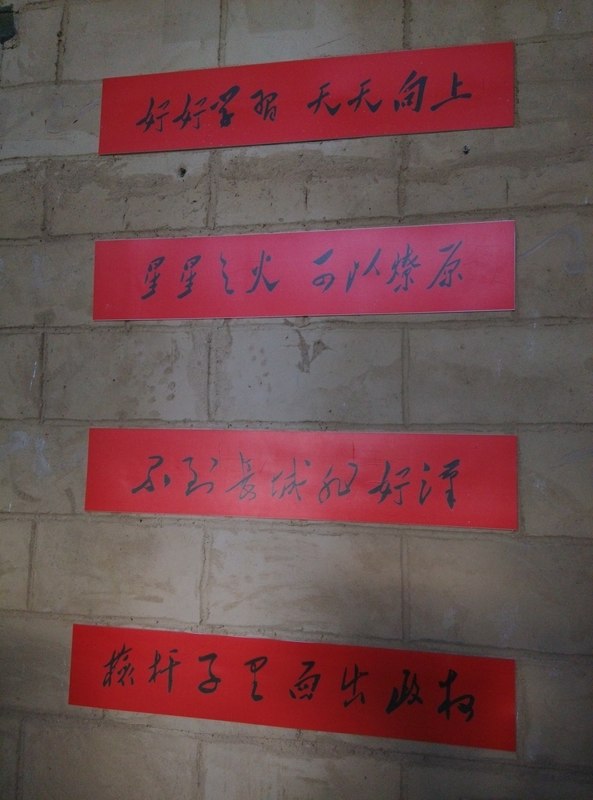 好好学習 天天向上
星星之火 可以燎原
不到長城非好漢
槍杆子里面出政权